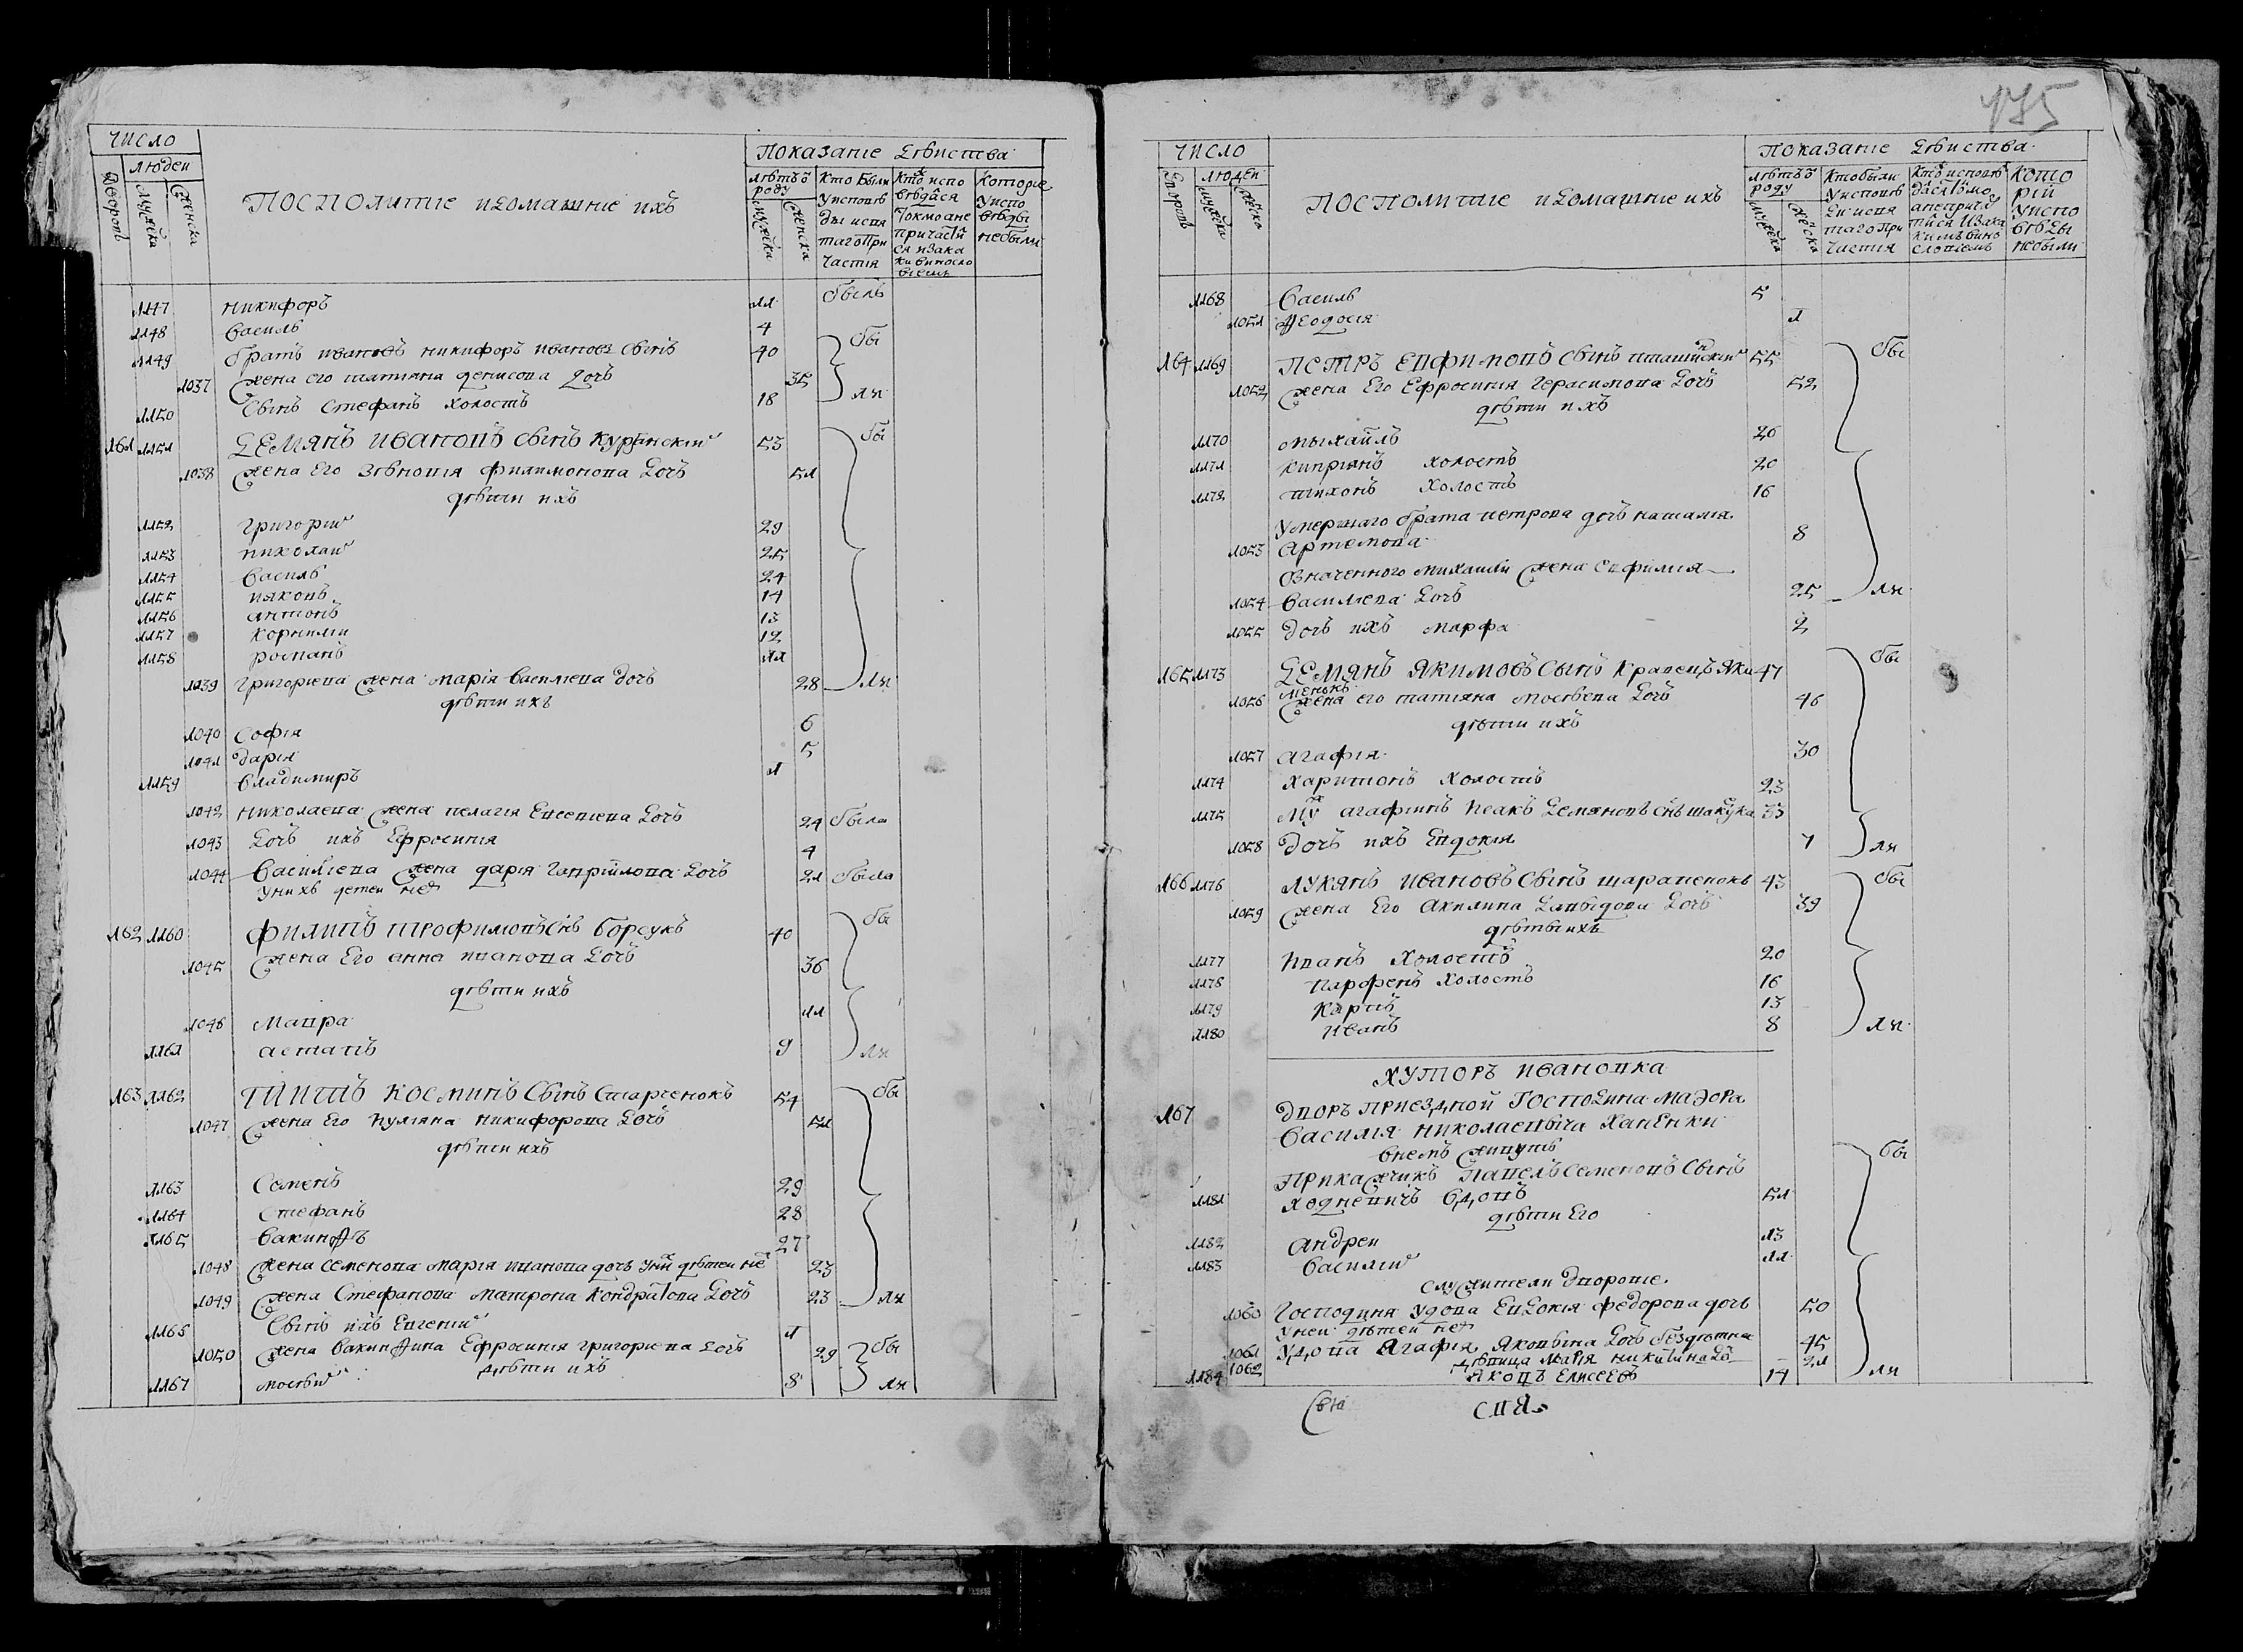 175
Число
людеи
Дворовъ
Мужеска
Женска
Посполитие и домашние ихъ
Показание действа
лѣтъ ѿ роду
мужеска
женска
Кто были у исповѣды и святаго причастия
Которие у исповѣды небыли
1147 Никифоръ 11 былъ
1148 Василь 4
1149 братъ ивановъ никифоръ ивановъ сынъ 40 бы
1037 Жена его татияна денисова дочъ 35
1150 Сынъ Стефанъ холостъ 18 ли
161 1151 Демянъ ивановъ сынъ Курбнский 53 бы
1038 Жена его Зѣновия филимонова дочъ 51
дѣти ихъ
1152 Григорий 29
1153 николай 25
1154 Василь 24
1155 ияковъ 14
1156 антонъ 13
1157 корнилий 12
1158 романъ 11
1039 григориева жена мария василиева дочъ 28 ли
дѣти ихъ
1040 София 6
1041 дария 5
1159 владимиръ 1
1042 николаева жена пелагия Евсевиева дочъ 24 была
1043 дочъ ихъ Ефросиния 4
1044 Василиева жена дария Гаврийлова дочъ 21 была
у нихъ детеи нет
162 1160 филипъ трофимовъ снъ борсукъ 40 бы
1045 Жена его анна иванова дочъ 36
дѣти ихъ
1046 Мавра 11
1161 астапъ 9 ли
163 1162 Титъ косминъ сынъ Старченокъ 54 бы
1047 Жена его иулияна никифорова дочъ 51
дѣти ихъ
1163 Семенъ 29
1164 Стефанъ 28
1165 вакинѳъ 27
1048 Жена семенова мария иванова дочъ у них дѣтеи нет 23
1049 Жена Стефанова матрона кондратова дочъ 23 ли
1166 Сынъ ихъ Евгений 1
1050 Жена вакинѳина Ефросиния григориева дочъ 29 бы
дѣти ихъ
1167 мосѣй 8 ли
Число
люден
Дворовъ
Мужеска
Женска
Посполитие и домашние ихъ
Показание действа
лѣтъ ѿ роду
мужеска
женска
Кто были у исповѣди и святаго причастия
Которий у исповѣды небыли
1168 Василь 5
1051 Ѳеодосия 1
164 1169 Петръ Евфимовъ сынъ пташинский 55 бы
1052 Жена Его Ефросиния Герасимова дочъ 52
дѣти ихъ
1170 мыхайлъ 26
1171 киприянъ холостъ 20
1172 тихонъ холостъ 16
умершаго брата петрова дочъ наталия
1053 артемова 8
означенного михайли жена евфимия
1054 Василиева дочъ 25 ли
1055 дочъ ихъ марфа 2
165 1173 Демянъ Якимовъ сынъ кравецъ Яки 47 бы
менокъ
1056 Жена его татияна мосѣева дочъ 46
дѣти ихъ
1057 агафия 30
1174 харитонъ холостъ 23
1175 му агафиинъ исакъ Демяновъ снъ шакука 33
1058 дочъ ихъ Евдокия 7 ли
166 1176 Лукянъ ивановъ сынъ шарапенокъ 43 бы
1059 Жена Его акилина давыдова дочъ 39
дѣты ихъ
1177 иванъ холостъ 20
1178 парфенъ холостъ 16
1179 карпъ 13
1180 иванъ 8 ли
Хуторъ Ивановка
167 Дворъ приездной Господина маэора
Василия николаевыча Ханенки
внемъ живутъ бы
Прикажчикъ павелъ семеновъ сынъ
1181 ходневичъ вдовъ 51
дѣти Его
1182 андреи 13
1183 василий 11
служители дворовие
1060 Господиня удова Евдокия федорова дочъ 50
у неи дѣтеи нет
1061 удова агафия Яковвна дочъ бездѣтна 45
1062 дѣвица мария никитина дъ 21
1184 Яковъ Елисеевъ 14 ли